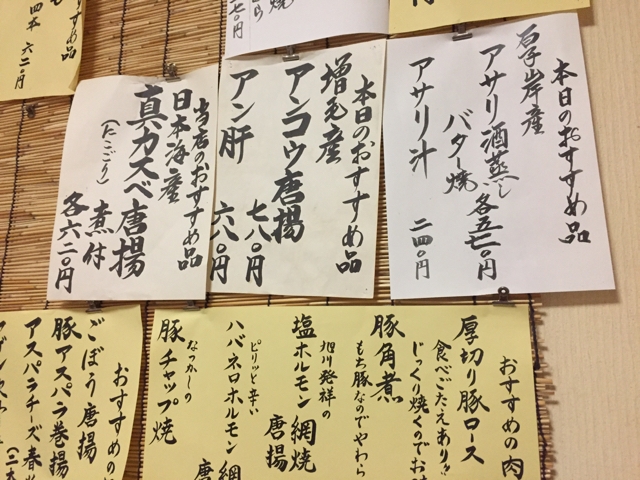 四本 六二〇円
焼
七〇円
本日のおすすめ品
厚岸産
アサリ酒蒸し
バター焼
各五七〇円
アサリ汁 二四〇円
本日のおすすめ品
増毛産
アンコウ唐揚
七八〇円
アン肝 六八〇円
当店のおすすめ品
日本海産
真カスベ唐揚
(にこごり) 煮付
各六二〇円
おすすめの肉
厚切り豚ロース
食べごたえあり!!
じっくり焼くのでお
豚角煮
もち豚なのでやわら
旭川発祥の
塩ホルモン網焼
唐揚
ピリッと辛い
ハバネロホルモン網
唐
なつかしの
豚チャップ焼
おすすめの
ごぼう唐揚
豚アスパラ巻揚
アスパラチーズ春